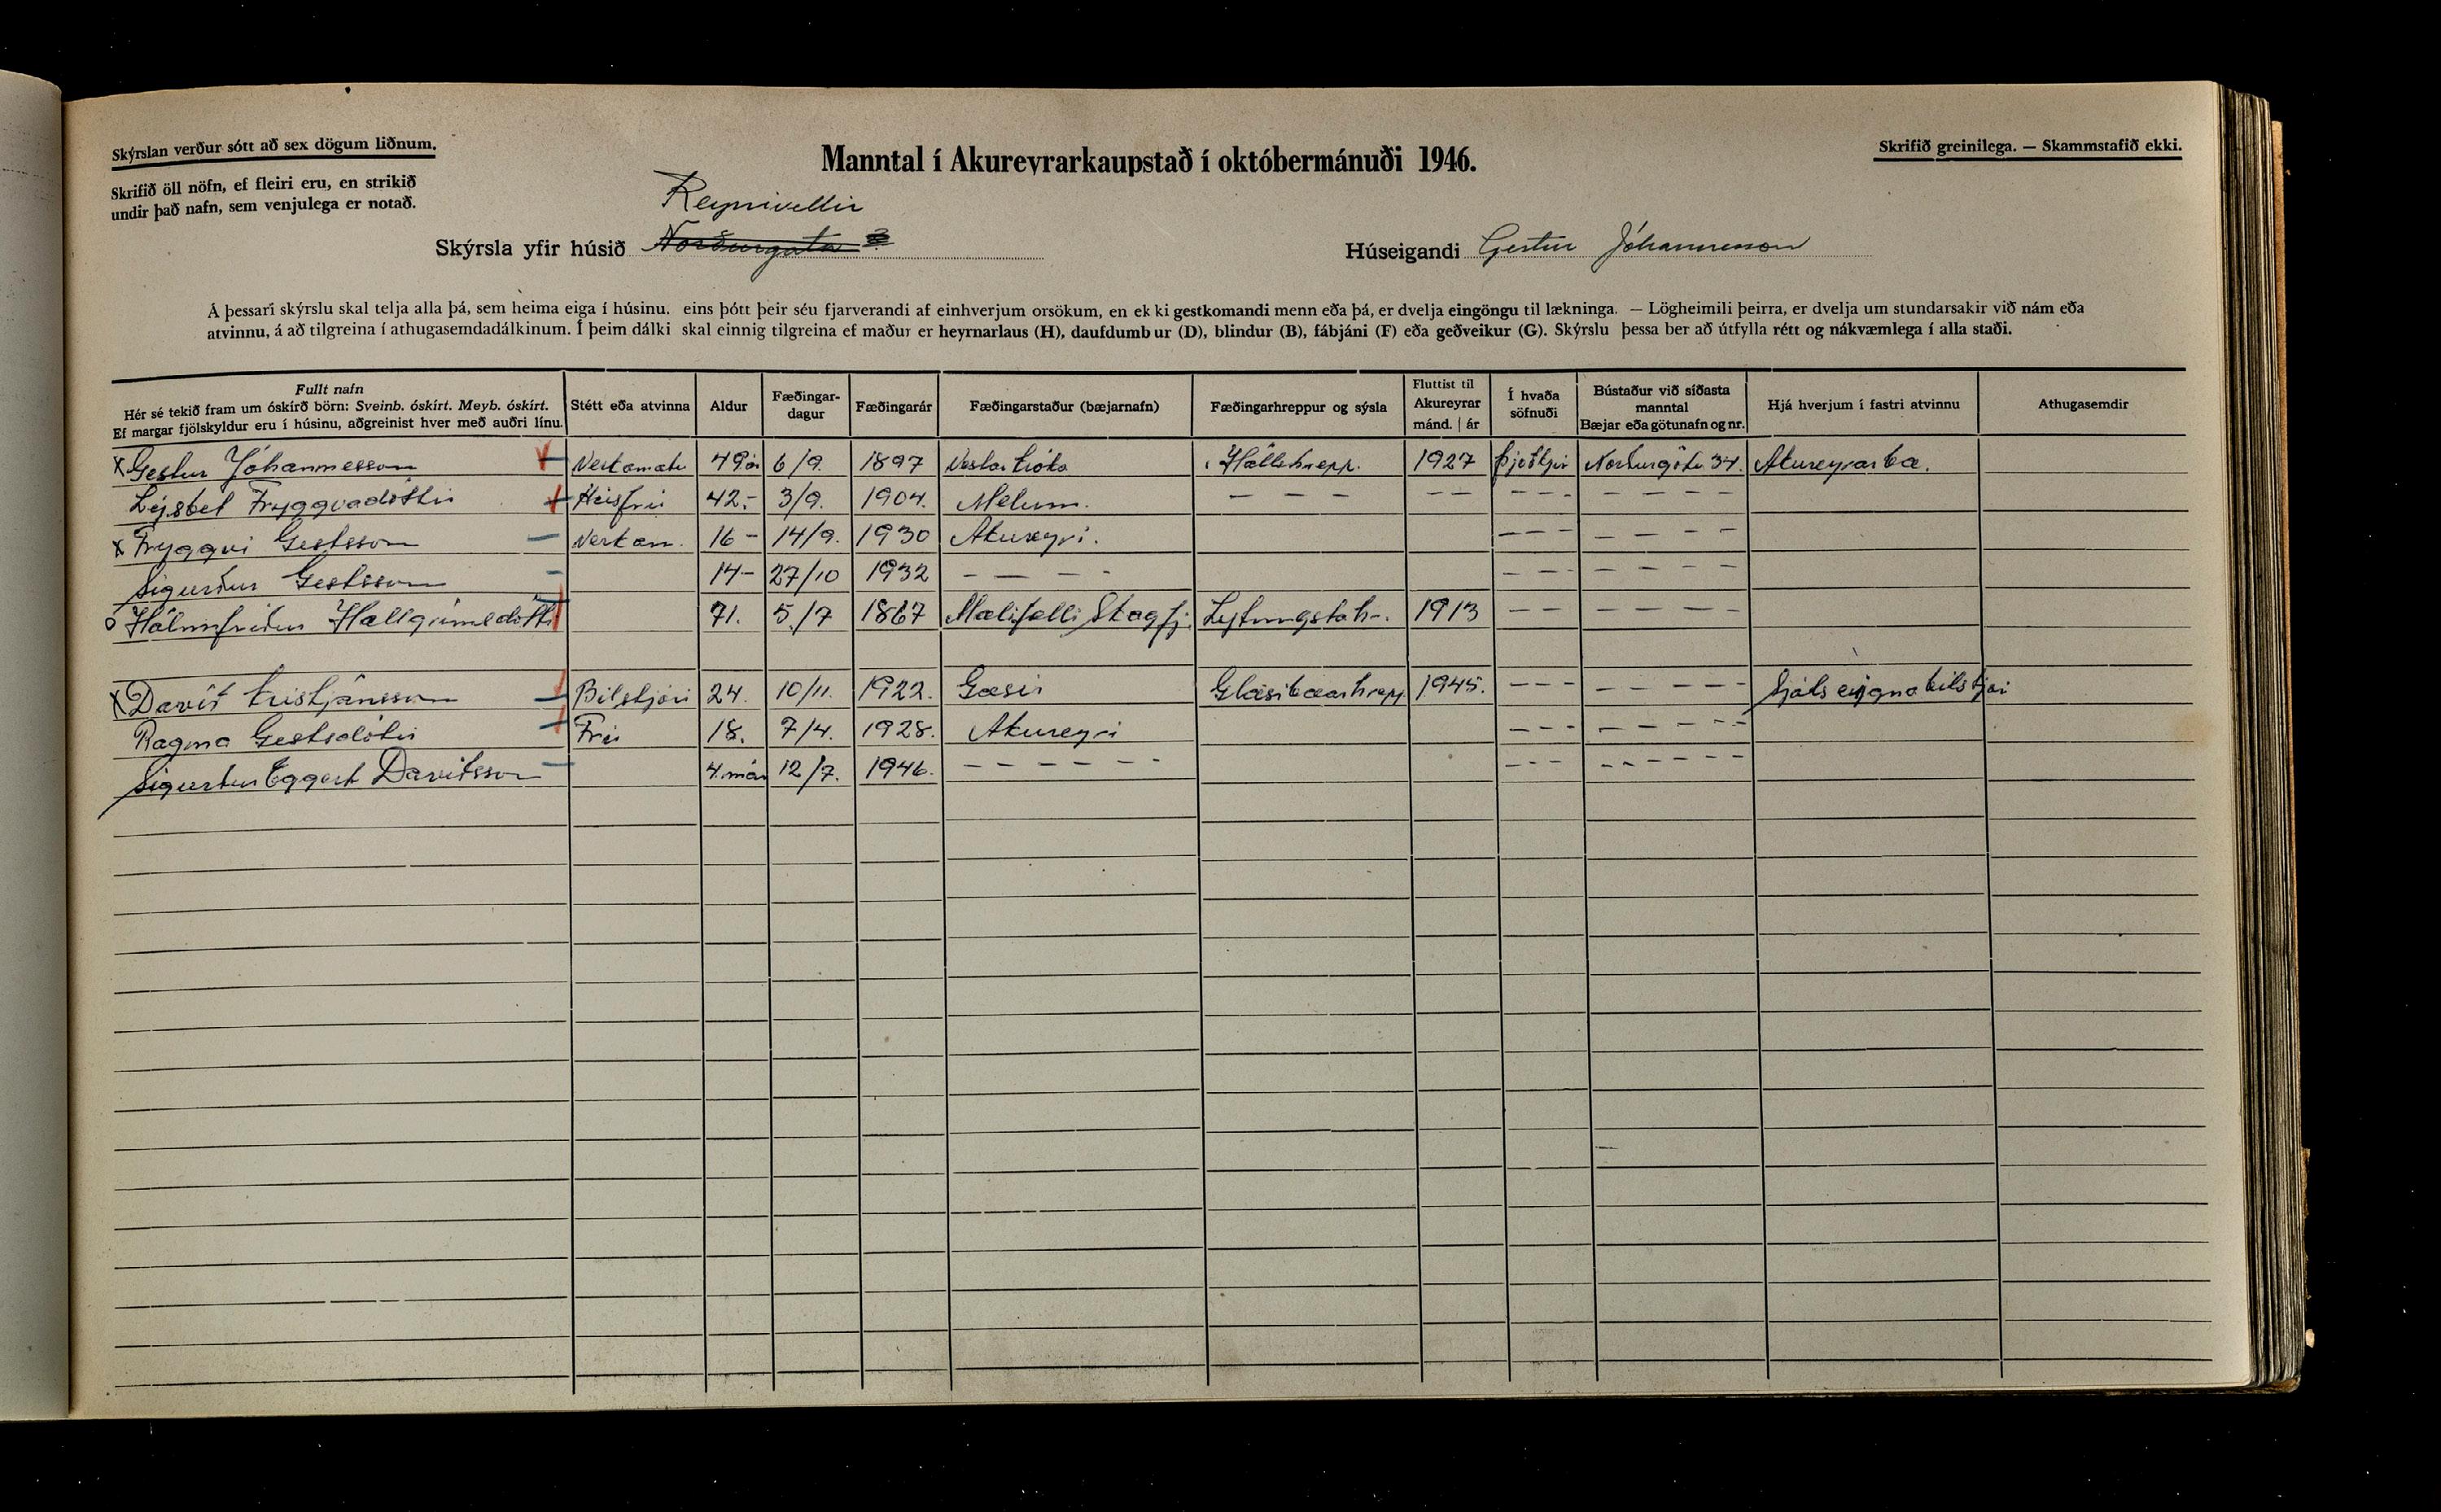 Skýrslan verður sótt að sex dögum liðnum.
Skrifið öll nöfn, ef fleiri eru, en strikið
undir það nafn, sem venjulega er notað.
Manntal í Akureyrarkaupstað í októbermánuði 1946.
Skrifið greinilega. — Skammstafið ekki.
Reynivellir
Skýrsla yfir húsið Norðurgata 3
Húseigandi Gestur Jóhannesson
Á þessari skýrslu skal telja alla þá, sem heima eiga í húsinu, eins þótt þeir séu fjarverandi af einhverjum orsökum, en ek ki gestkomandi menn eða þá, er dvelja eingöngu til lækninga. — Lögheimili þeirra, er dvelja um stundarsakir við nám eða
atvinnu, á að tilgreina í athugasemdadálkinum. Í þeim dálki skal einnig tilgreina ef maður er heyrnarlaus (H), daufdumb ur (D), blindur (B), fábjáni (F) eða geðveikur (G). Skýrslu þessa ber að útfylla rétt og nákvæmlega í alla staði.
Fullt nafn
Hér sé tekið fram um óskírð börn: Sveinb. óskírt. Meyb. óskírt.
Ef margar fjölskyldur eru í húsinu, aðgreinist hver með auðri línu.
Stétt eða atvinna
Aldur
Fæðingar-
dagur
Fæðingarár
Fæðingarstaður (bæjarnafn)
Fæðingarhreppur og sýsla
Fluttist til
Akureyrar
mánd. | ár
Í hvaða
söfnuði
Bústaður við síðasta
manntal
Bæjar eða götunafn og nr.
Hjá hverjum í fastri atvinnu
Athugasemdir
x Gestur Jóhannesson Verkamaðr 49 ár 6/9. 1897 Hálshrepp. 1927 Þjóðkjir Norðurgötu 34. Akureyrarbæ.
Tryggvadóttir Húsfrú 42.- 3/9. 1904. Melum. - - - - - - - - - - - -
x Tryggvi Gestsson Verkam. 16 - 14/9. 1930 Akureyri. - - - - - - -
Sigurður Gestsson 14- 27/10 1932 - - - - - - - - - - -
o Hólmfríður Hallgrímsdóttir 71. 5/7 1867 Mælifelli Skagfj. Lýtingstah-. 1913 - - - - - -
x Davíð Kristjánsson Bílstjóri 24. 10/11. 1922. Gæsir Glæsibæarhrepp 1945. - - - - - - - Sjáls eignabílstjóri
Ragna Gestsdóttir Frú 18. 7/4. 1928. Akureyri - - - - - - - -
Sigurður Eggert Davíðsson 4. mán 12/7. 1946. - - - - - - - - - - - - - - -